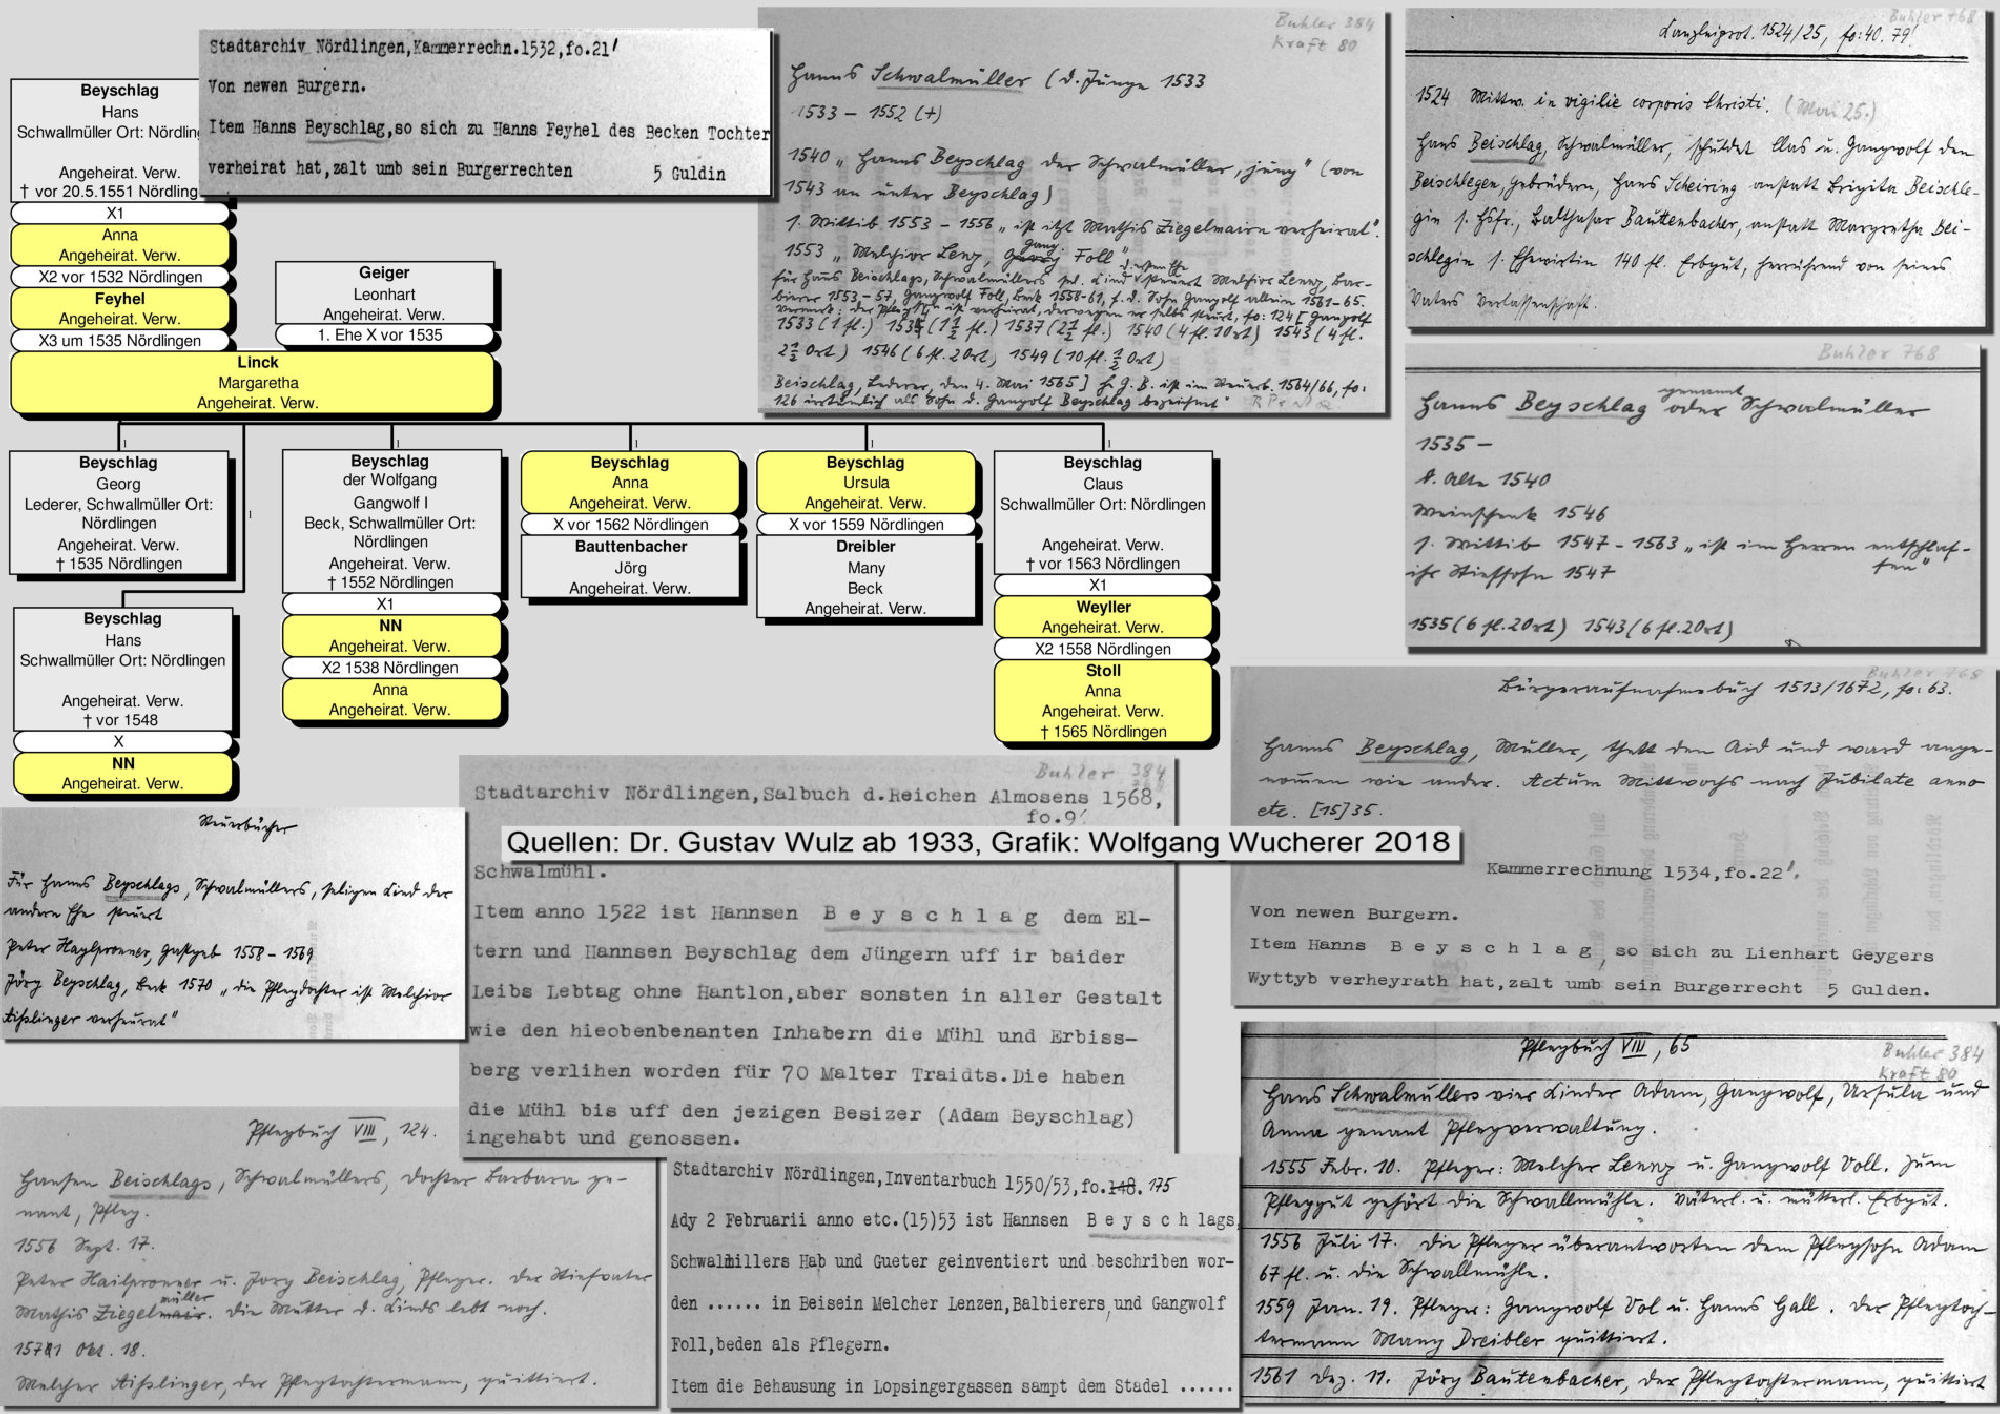 Beyschlag
Hans
Schwallmüller Ort: Nördling
Angeheirat. Verw.
† vor 20.5.1551 Nördling
X1
Anna
Angeheirat. Verw.
X2 vor 1532 Nördlingen
Feyhel
Angeheirat. Verw.
X3 um 1535 Nördlingen
Geiger
Leonhart
Angeheirat. Verw.
1. Ehe X vor 1535
Linck
Margaretha
Angeheirat. Verw.
Stadtarchiv Nördlingen,Kammerrechn.1532,fo.21'
Von newen Burgern.
Item Hanns Beyschlag,so sich zu Hanns Feyhel des Becken Tochter
verheirat hat,zalt umb sein Burgerrechten 5 Guldin
Buhler 384
Kraft 80
Hanns Schwalmüller (d. Junge 1533
1533 – 1552 (+)
1540 „Hanns Beyschlag der Schwalmüller, jung" (von
1543 an unter Beyschlag)
1. Wittib 1553 – 1556 „ist itzt Mathis Ziegelmairn verheirat".
1553 „Melchior Lenz, Gang Foll"
für Hanns Beischlags, Schwalmüllers sel. Kind steuert Melchior Lenz, Bar-
bierer 1553–57, Gangwolf Foll, Beck 1558–61, f. d. Sohn Gangolf allein 1561–65.
1533 (1 fl.) 1535 (1½ fl.) 1537 (2½ fl.) 1540 (4 fl. 1 Ort) 1543 (4 fl.
2½ Ort) 1546 (6 fl. 2 Ort) 1549 (10 fl. ½ Ort)
Beischlag, Lederer, den 4. Mai 1565] H. G. B. ist im Steuerb. 1564/66, fo.
126 irrtümlich als "Sohn d. Gangolf Beyschlag bezeichnet"
Buhler 768
Kanzleiprot. 1524/25, fo: 40. 79'
1524 Mittw. in vigilie corporis Christi. (Mai 25.)
Hans Beischlag, Schwalmüller, schuldet Clas u. Gangwolf den
Beischlegen, Gebrüdern, Hans Scheiring anstatt Brigita Beischle-
gin s. Hsfr., Balthasar Bauttenbacher, anstatt Margretha Bei-
schlegin s. Ehewirtin 140 fl. Erbgut, herrührend von seines
Vaters Verlassenschaft.
Buhler 768
Hanns Beyschlag genannt oder Schwalmüller
1535 –
d. Alte 1540
Weinschenk 1546
1. Wittib 1547 – 1563 „ist im Herren entschlaf-
fen"
ihr Stiefsohn 1547
1535 (6 fl. 2 Ort) 1543 (6 fl. 2 Ort)
Beyschlag
Georg
Lederer, Schwallmüller Ort:
Nördlingen
Angeheirat. Verw.
† 1535 Nördlingen
Beyschlag
Hans
Schwallmüller Ort: Nördlingen
Angeheirat. Verw.
† vor 1548
X
NN
Angeheirat. Verw.
Beyschlag
der Wolfgang
Gangwolf I
Beck, Schwallmüller Ort:
Nördlingen
Angeheirat. Verw.
† 1552 Nördlingen
X1
NN
Angeheirat. Verw.
X2 1538 Nördlingen
Anna
Angeheirat. Verw.
Beyschlag
Anna
Angeheirat. Verw.
X vor 1562 Nördlingen
Bauttenbacher
Jörg
Angeheirat. Verw.
Beyschlag
Ursula
Angeheirat. Verw.
X vor 1559 Nördlingen
Dreibler
Many
Beck
Angeheirat. Verw.
Beyschlag
Claus
Schwallmüller Ort: Nördlingen
Angeheirat. Verw.
† vor 1563 Nördlingen
X1
Weyller
Angeheirat. Verw.
X2 1558 Nördlingen
Stoll
Anna
Angeheirat. Verw.
† 1565 Nördlingen
Buhler 768
Bürgeraufnahmebuch 1513/1672, fo: 63.
Hanns Beyschlag, Müller, thett den Aid und ward ange-
nomen wie ander. Actum Mittwochs nach Jubilate anno
etc. [15]35.
Kammerrechnung 1534,fo.22'.
Von newen Burgern.
Item Hanns Beyschlag, so sich zu Lienhart Geygers
Wyttyb verheyrath hat,zalt umb sein Burgerrecht 5 Gulden.
Quellen: Dr. Gustav Wulz ab 1933, Grafik: Wolfgang Wucherer 2018
Steuerbücher
Für Hanns Beyschlags, Schwalmüllers, seligen Kind der
andern Ehe steuert
Peter Haylpronner, Gastgeb 1558 – 1569
Jörg Beyschlag, Beck 1570 „die Pflegdochter ist Melchior
Aißlinger verheurat"
Buhler 384
Stadtarchiv Nördlingen,Salbuch d.Reichen Almosens 1568,
fo.9'
Schwalmühl.
Item anno 1522 ist Hannsen Beyschlag dem El-
tern und Hannsen Beyschlag dem Jüngern uff ir baider
Leibs Lebtag ohne Hantlon,aber sonsten in aller Gestalt
wie den hieobenbenanten Inhabern die Mühl und Erbiss-
berg verlihen worden für 70 Malter Traidts.Die haben
die Mühl bis uff den jezigen Besizer (Adam Beyschlag)
ingehabt und genossen.
Pflegbuch VIII, 124.
Hansen Beischlags, Schwalmüllers, Dochter Barbara ge-
nant, Pfleg.
1556 Sept. 17.
Peter Hailpronner u. Jorg Beischlag, Pfleger. Der Stiefvater
Mathis Ziegelmair müller. Die Mutter d. Kinds lebt noch.
1571 Okt. 18.
Melcher Aißlinger, der Pflegtochtermann, quittiert.
Stadtarchiv Nördlingen,Inventarbuch 1550/53,fo.148. 175
Ady 2 Februarii anno etc.(15)53 ist Hannsen Beyschlags,
Schwalmillers Hab und Gueter geinventiert und beschriben wor-
den ...... in Beisein Melcher Lenzen,Balbierers,und Gangwolf
Foll,beden als Pflegern.
Item die Behausung in Lopsingergassen sampt dem Stadel ......
Pflegbuch VIII, 65
Buhler 384
Kraft 80
Hans Schwalmüllers vier Kinder Adam, Gangwolf, Ursula und
Anna genant Pflegverwaltung.
1555 Febr. 10. Pfleger: Melcher Lennz u. Gangwolf Voll. Zum
Pfleggut gehört die Schwallmühle. Väterl. u. mütterl. Erbgut.
1556 Juli 17. Die Pfleger überantworten dem Pflegsohn Adam
67 fl. u. die Schwallmühle.
1559 Jan. 19. Pfleger: Gangwolf Vol u. Hanns Gall. Der Pflegtoch-
termann Many Dreibler quittiert.
1561 Dez. 11. Jörg Bautenbacher, der Pflegtochtermann, quittiert